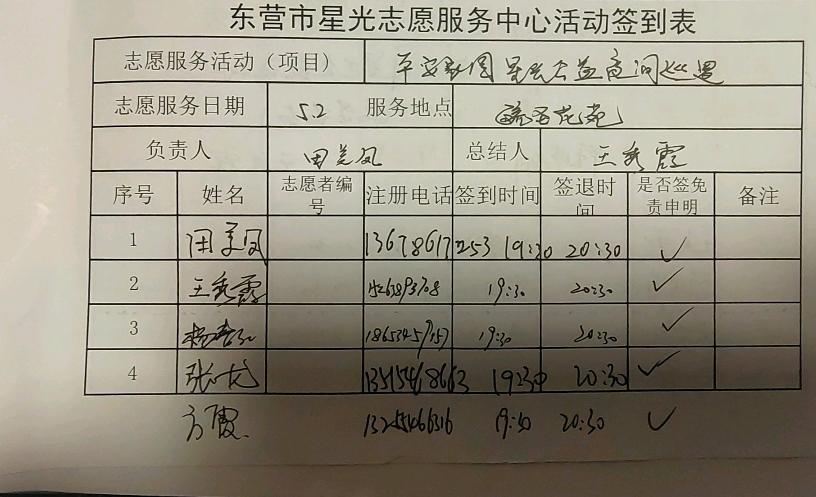 东营市星光志愿服务中心活动签到表
志愿服务活动（项目） 平安家园星光公益夜间巡逻
志愿服务日期 5.2 服务地点 花苑
负责人 田美凤 总结人 王秀霞
序号 姓名 志愿者编号 注册电话 签到时间 签退时间 是否签免责申明 备注
1 田美凤 19:30 20:30 ✓
2 王秀霞 19:30 20:30 ✓
3 杨 19:30 20:30 ✓
4 张龙 13515468663 19:30 20:30 ✓
方霞 13255466316 19:30 20:30 ✓